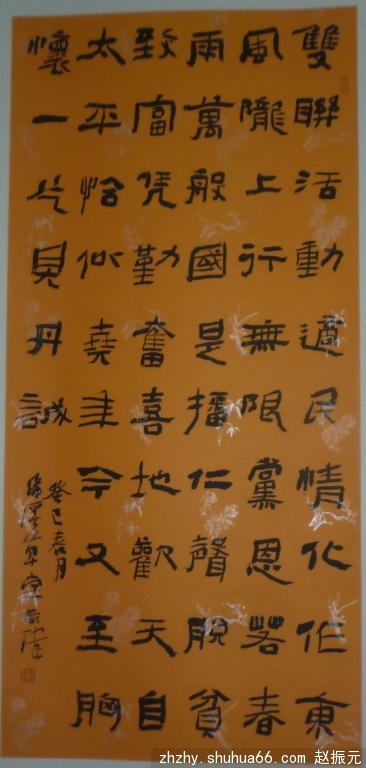 雙聯活動適民情化作東
風隴上行無限黨恩若春
雨萬般國是播仁聲脫貧
致富凭勤奮喜地歡天自
太平恰似堯年今又至胸
懷一片見丹誠
癸巳春月
zhzhy.shuhua66.com 赵振元